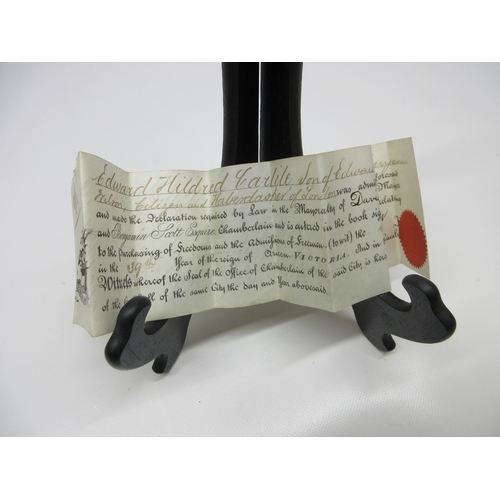 Edward Hildred Carlile, Son of Edward
Citizen and Haberdasher of London was admitted
and made the Declaration required by Law in the Mayoralty of David
and Benjamin Scott Esquire Chamberlain and is entred in the book sig
to the purchasing of Freedoms and the Admissions of Freemen (to wit) the
in the 39th Year of the reign of Queen VICTORIA. And in
Witness whereof the Seal of the Office of Chamberlain of the said City is here
of the same City the day and Year abovesaid.